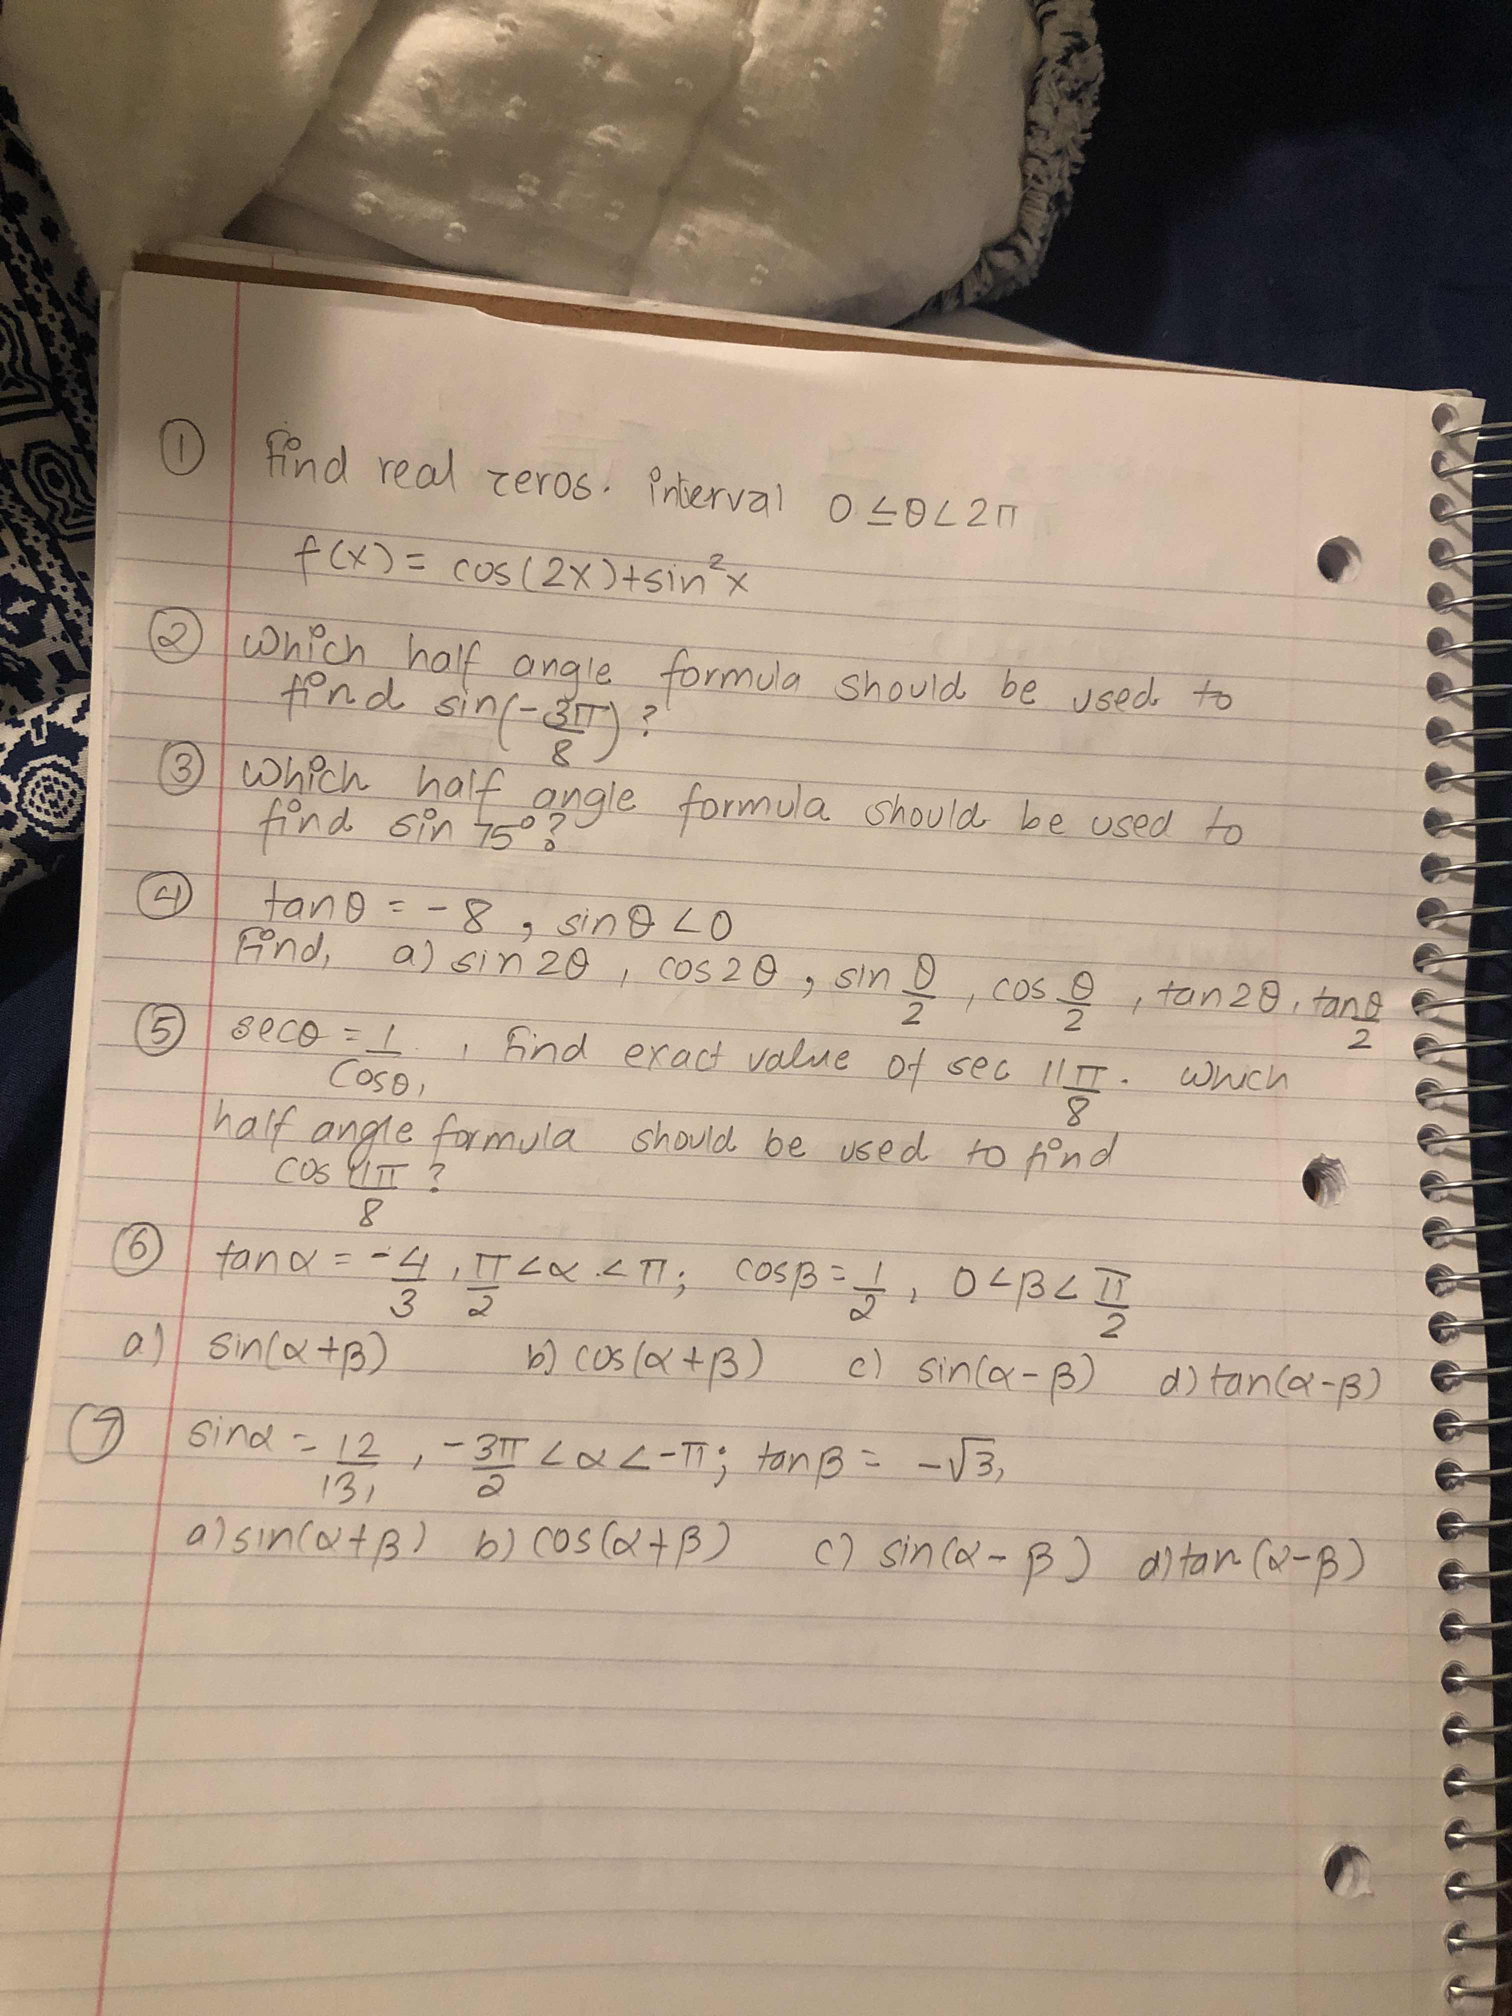 ① Find real zeros. interval 0≤θ<2π
f(x) = cos(2x)+sin²x
② Which half angle formula should be used to
find sin(-3π/8)?
③ Which half angle formula should be used to
find sin 75°?
④ tanθ = -8, sinθ<0
Find, a) sin2θ, cos2θ, sin θ/2, cos θ/2, tan2θ, tan θ/2
⑤ secθ = 1/cosθ, Find exact value of sec 11π/8. Which
half angle formula should be used to find
cos 11π/8?
⑥ tanα = -4/3, π/2<α<π; cosβ = 1/2, 0<β<π/2
a) sin(α+β) b) cos(α+β) c) sin(α-β) d) tan(α-β)
⑦ sinα = 12/13, -3π/2<α<-π; tanβ = -√3,
a) sin(α+β) b) cos(α+β) c) sin(α-β) d) tan(α-β)